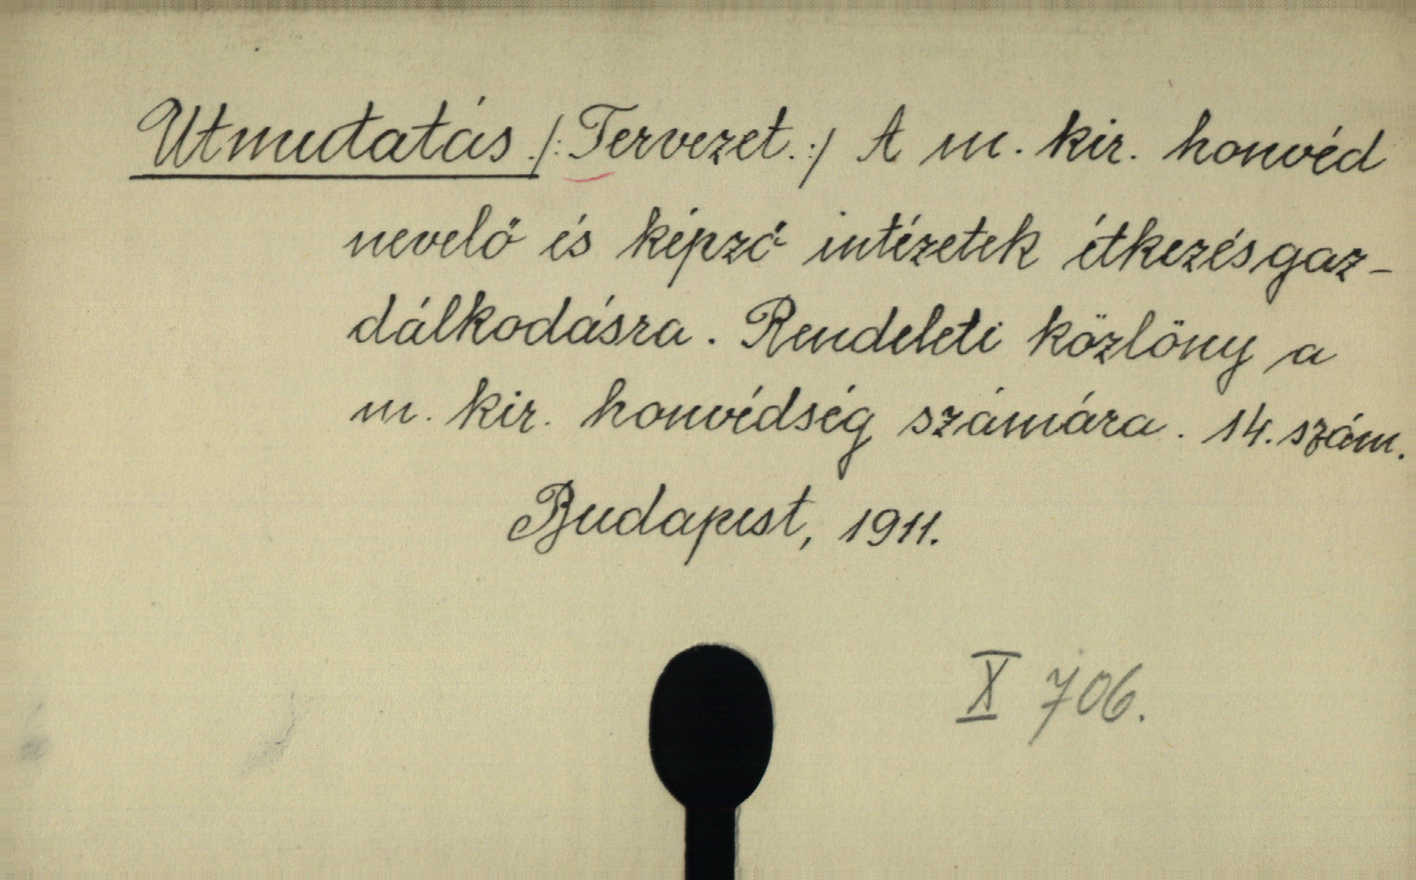 Utmutatás /: Tervezet. :/ A m. kir. honvéd
nevelő és képző intézetek étkezésgaz-
dálkodásra. Rendeleti közlöny a
m. kir. honvédség számára. 14. szám.
Budapest, 1911.
X 706.